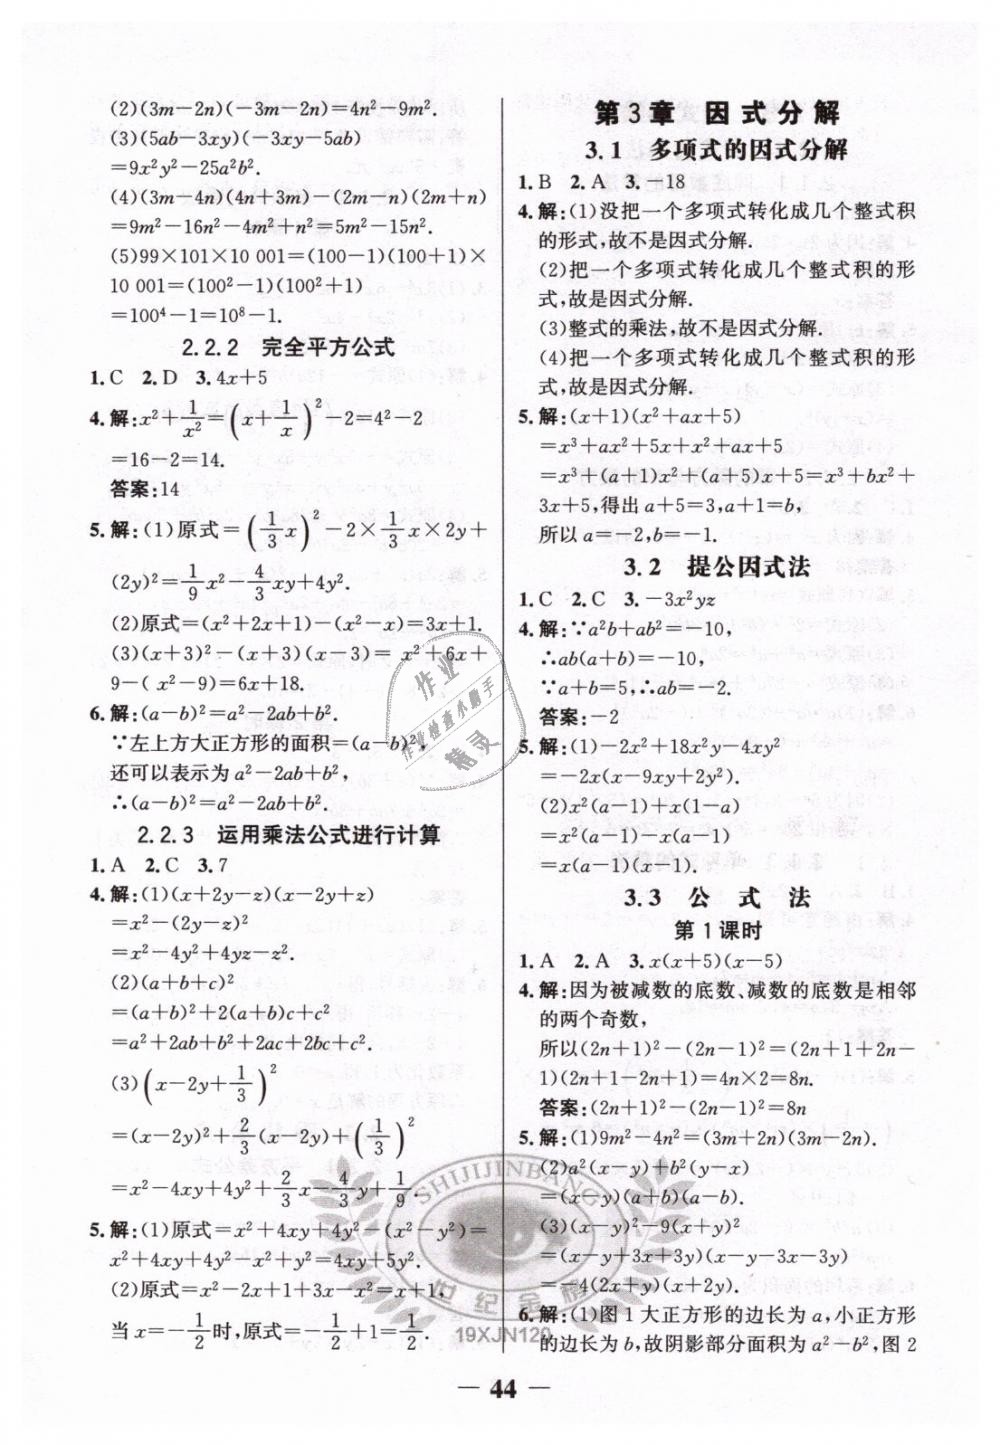 (2)(3m−2n)(−3m−2n)=4n²−9m².
(3)(5ab−3xy)(−3xy−5ab)
=9x²y²−25a²b².
(4)(3m−4n)(4n+3m)−(2m−n)(2m+n)
=9m²−16n²−4m²+n²=5m²−15n².
(5)99×101×10 001=(100−1)(100+1)×
10 001=(100²−1)(100²+1)
=100⁴−1=10⁸−1.
2.2.2 完全平方公式
1.C 2.D 3.4x+5
4.解:x²+1/x²=(x+1/x)²−2=4²−2
=16−2=14.
答案:14
5.解:(1)原式=(1/3x)²−2×1/3x×2y+
(2y)²=1/9x²−4/3xy+4y².
(2)原式=(x²+2x+1)−(x²−x)=3x+1.
(3)(x+3)²−(x+3)(x−3)= x²+6x+
9−( x²−9)=6x+18.
6.解:(a−b)²=a²−2ab+b².
∵左上方大正方形的面积=(a−b)²,
还可以表示为a²−2ab+b²,
∴(a−b)²=a²−2ab+b².
2.2.3 运用乘法公式进行计算
1.A 2.C 3.7
4.解:(1)(x+2y−z)(x−2y+z)
=x²−(2y−z)²
=x²−4y²+4yz−z².
(2)(a+b+c)²
=(a+b)²+2(a+b)c+c²
=a²+2ab+b²+2ac+2bc+c².
(3)(x−2y+1/3)²
=(x−2y)²+2/3(x−2y)+(1/3)²
=x²−4xy+4y²+2/3x−4/3y+1/9.
5.解:(1)原式=x²+4xy+4y²−(x²−y²)=
x²+4xy+4y²−x²+y²=4xy+5y².
(2)原式=x²−2x+1+3x−x²=x+1,
当x=−1/2时,原式=−1/2+1=1/2.
第3章 因式分解
3.1 多项式的因式分解
1.B 2.A 3.−18
4.解:(1)没把一个多项式转化成几个整式积
的形式,故不是因式分解.
(2)把一个多项式转化成几个整式积的形
式,故是因式分解.
(3)整式的乘法,故不是因式分解.
(4)把一个多项式转化成几个整式积的形
式,故是因式分解.
5.解:(x+1)(x²+ax+5)
=x³+ax²+5x+x²+ax+5
=x³+(a+1)x²+(a+5)x+5=x³+bx²+
3x+5,得出a+5=3,a+1=b,
所以a=−2,b=−1.
3.2 提公因式法
1.C 2.C 3.−3x²yz
4.解:∵a²b+ab²=−10,
∴ab(a+b)=−10,
∵a+b=5,∴ab=−2.
答案:−2
5.解:(1)−2x²+18x²y−4xy²
=−2x(x−9xy+2y²).
(2)x²(a−1)+x(1−a)
=x²(a−1)−x(a−1)
=x(a−1)(x−1).
3.3 公式法
第1课时
1.A 2.A 3.x(x+5)(x−5)
4.解:因为被减数的底数、减数的底数是相邻
的两个奇数,
所以(2n+1)²−(2n−1)²=(2n+1+2n−
1)(2n+1−2n+1)=4n×2=8n.
答案:(2n+1)²−(2n−1)²=8n
5.解:(1)9m²−4n²=(3m+2n)(3m−2n).
(2)a²(x−y)+b²(y−x)
=(x−y)(a+b)(a−b).
(3)(x−y)²−9(x+y)²
=(x−y+3x+3y)(x−y−3x−3y)
=−4(2x+y)(x+2y).
6.解:(1)图1大正方形的边长为a,小正方形
的边长为b,故阴影部分面积为a²−b²,图2
作业
作业检查小助手
精灵
SHIJIJINBANG
世纪金榜
19XJN120
— 44 —